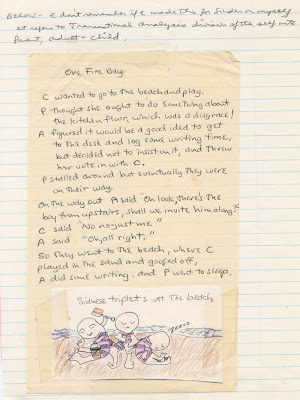 Below - I don't remember if I made this for Susan or myself
it refers to Transactional Analysis division of the self into
Parent, adult - child.
One Fine Day
C wanted to go to the beach and play,
P thought she ought to do something about
the kitchen floor, which was a disgrace!
A figured it would be a good idea to get
to the desk and log some writing time,
but decided not to insist on it, and threw
her vote in with C.
P stalled around but eventually they were
on their way.
On the way out A said "Oh look, there's the
boy from upstairs, shall we invite him along?"
C said "No no just me"
A said "Oh, all right."
So they went to the beach, where C
played in the sand and goofed off,
A did some writing. and P went to sleep.
Siamese triplets at the beach
Zzzzz